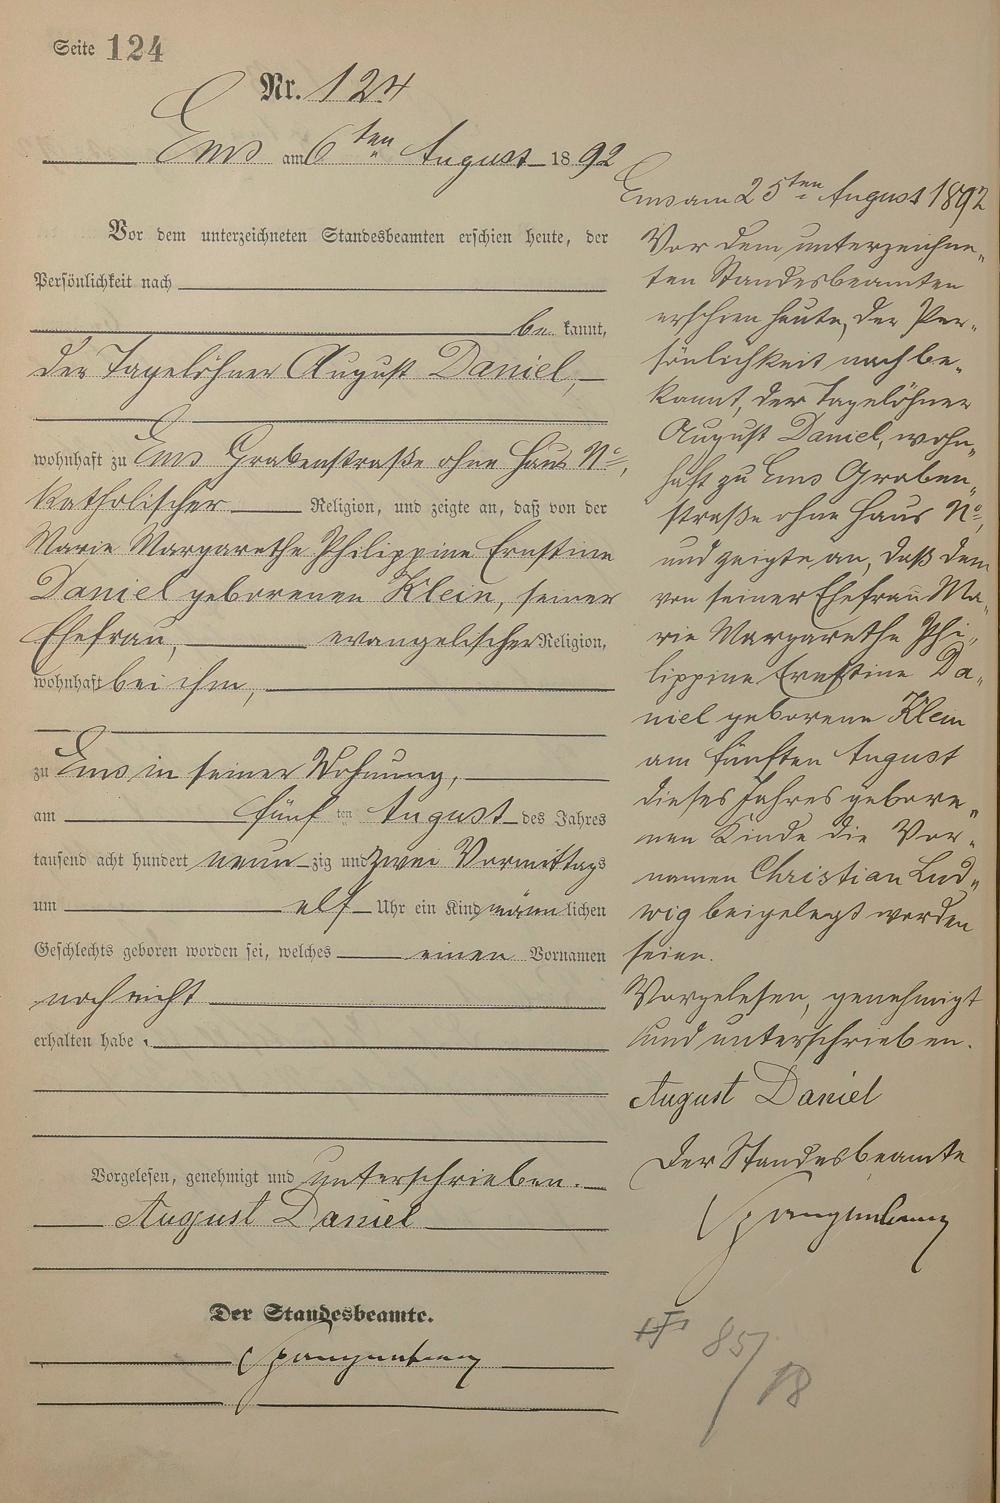 Seite 124
Nr. 124
Ems am 6ten August 1892
Vor dem unterzeichneten Standesbeamten erschien heute, der
Persönlichkeit nach
be kannt,
der Tagelöhner August Daniel,
wohnhaft zu Ems Grabenstraße ohne Haus No,
katholischer Religion, und zeigte an, daß von der
Marie Margarethe Philippine Ernstine
Daniel geborenen Klein, seiner
Ehefrau, evangelischer Religion,
wohnhaft bei ihm,
zu Ems in seiner Wohnung,
am fünf ten August des Jahres
tausend acht hundert neun zig und zwei Vormittags
um elf Uhr ein Kind männlichen
Geschlechts geboren worden sei, welches einen Vornamen
noch nicht
erhalten habe.
Vorgelesen, genehmigt und unterschrieben.
August Daniel
Der Standesbeamte.
Spangenberg
Ems am 25ten August 1892
Vor dem unterzeichne-
ten Standesbeamten
erschien heute, der Per-
sönlichkeit nach be-
kannt, der Tagelöhner
August Daniel, wohn-
haft zu Ems Graben-
straße ohne Haus No,
und zeigte an, daß dem
von seiner Ehefrau Ma-
rie Margarethe Phi-
lippine Ernstine Da-
niel geborene Klein
am fünften August
dieses Jahres gebore-
nen Kinde die Vor-
namen Christian Lud-
wig beigelegt worden
seien.
Vorgelesen, genehmigt
und unterschrieben.
August Daniel
Der Standesbeamte
Spangenberg
85/18